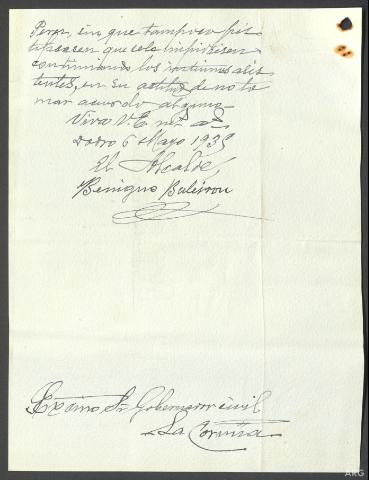 Perez, sin que tampoco jus
tificasen que selo impidiesen
continuando los mismos asis
tentes, en su actitud de no to
mar acuerdo alguno.
Viva V.E. ms. as.
Dodro 6 Mayo 1935
El Alcalde,
Benigno Baleirou
Excmo Sr Gobernador civil
La Coruña
ARG